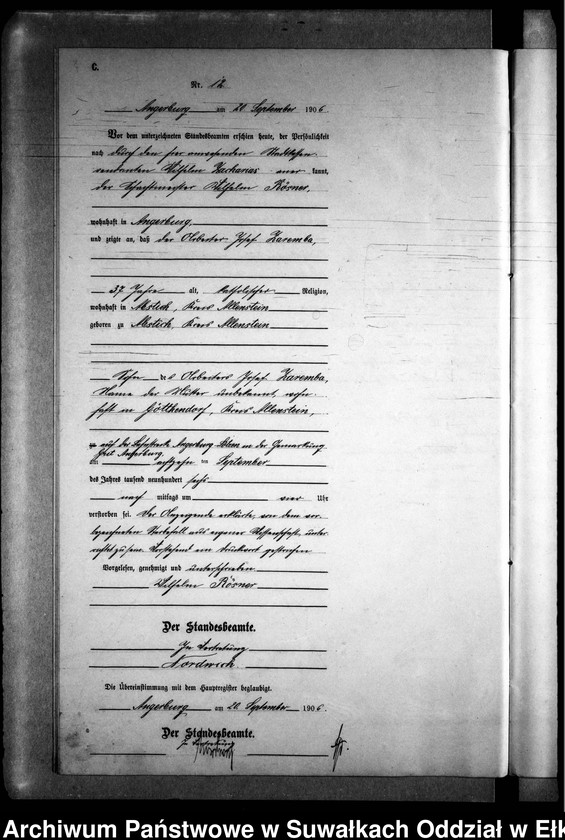 C.
Nr. 12
Angerburg am 20 September 1906
Vor dem unterzeichneten Standesbeamten erschien heute, der Persönlichkeit
nach durch den hier anwesenden Stadtkassen
rendanten Wilhelm Zacharias aner kannt,
der Schachtmeister Wilhelm Rösner,
wohnhaft in Angerburg,
und zeigte an, daß der Arbeiter Josef Zaremba,
37 Jahre alt, katholischer Religion,
wohnhaft in Kreis Allenstein
geboren zu Kreis Allenstein
Sohn des Arbeiters Josef Zaremba,
Name der Mutter unbekannt, wohn
haft in Göttkendorf, Kreis Allenstein,
auf der Angerburg in der Gemarkung
Angerburg
am achtzehn ten September
des Jahres tausend neunhundert sechs
nach mittags um vier Uhr
verstorben sei. Der Anzeigende erklärte, von dem vor
bezeichneten Sterbefall aus eigener Wissenschaft unter
richtet zu sein. Vorstehend ein Druckwort gestrichen
Vorgelesen, genehmigt und unterschrieben
Wilhelm Rösner
Der Standesbeamte.
In Vertretung
Die Übereinstimmung mit dem Hauptregister beglaubigt.
Angerburg am 20. September 1906.
Der Standesbeamte.
In Vertretung
Archiwum Państwowe w Suwałkach Oddział w Ełk